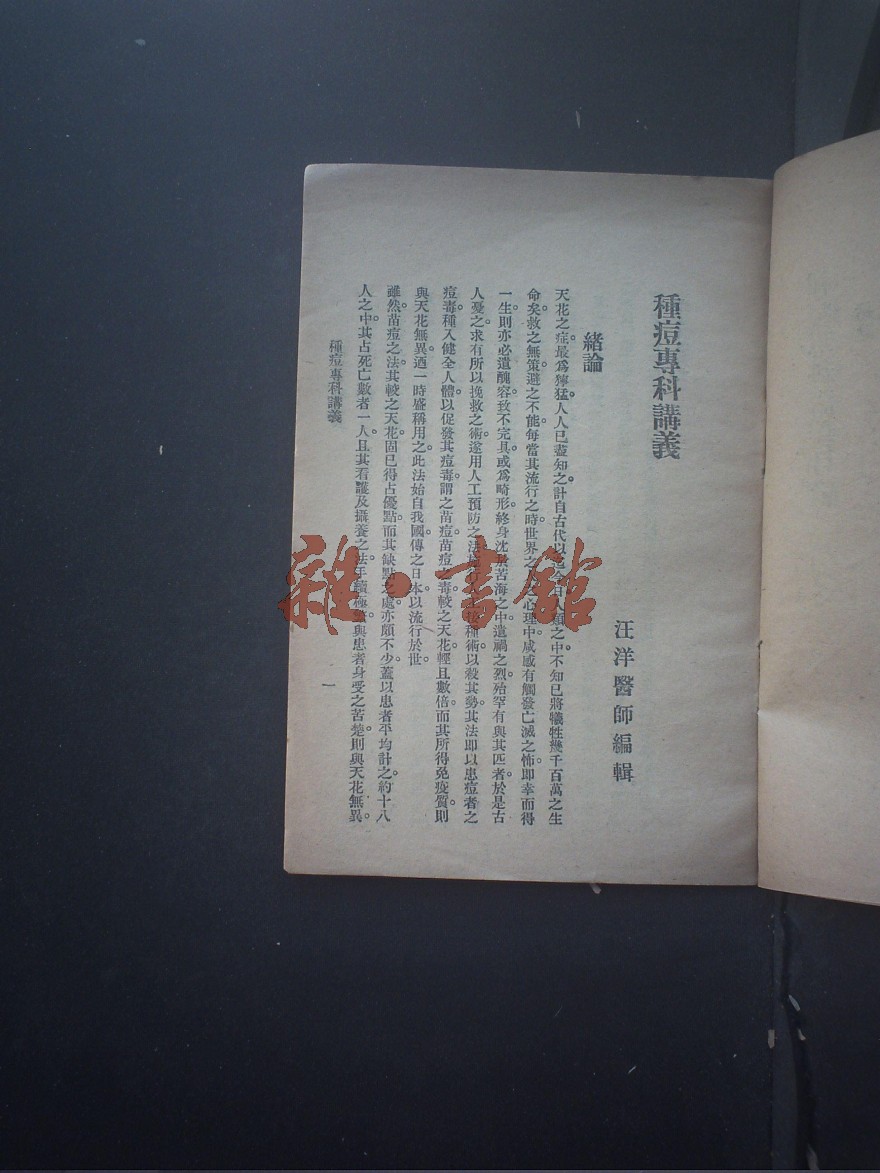 種痘專科講義
汪洋醫師編輯
緒論
天花之症。最爲獰猛。人人已盡知之。計自古代以迄今日人類之中。不知已將犧牲幾千百萬之生
命矣。救之無策。避之不能。每當其流行之時。世界之人心理中咸感有觸發亡滅之怖。即幸而得
一生。則亦必遺醜容。致不完具。或爲畸形。終身沈於苦海之中。遺禍之烈。殆罕有與其匹者。於是古
人憂之。求有所以挽救之術。遂用人工預防之法。接種術以殺其勢。其法即以患痘者之
痘毒。種入健全人體。以促發其痘毒。謂之苗痘。苗痘者。毒較之天花輕且數倍。而其所得免疫質。則
與天花無異。迺一時盛稱用之。此法始自我國。傳之日本。以流行於世。
雖然。苗痘之法。其較之天花。固已得占優點。而其缺點之處。亦頗不少。蓋以患者平均計之。約十八
人之中。其占死亡數者一人。且其看護及攝養之法。手續與患者身受之苦楚。則與天花無異。
種痘專科講義
一
雜·書館